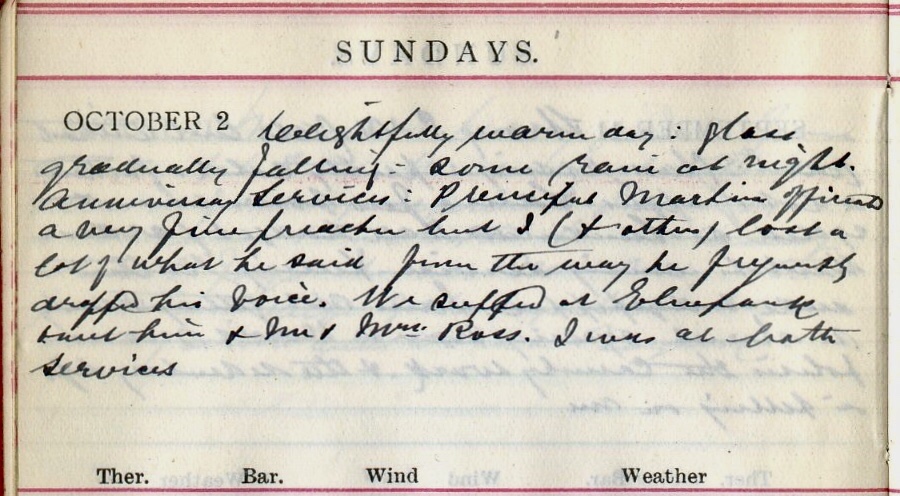 SUNDAYS.
OCTOBER 2 Delightfully warm day: glass
gradually falling: some rain at night.
Anniversary Services: Principal Martin officiated
a very fine preacher but I (& others) lost a
lot of what he said from the way he frequently
dropped his voice. We supped at
him & Mr & Mrs. Ross. I was at both
services
Ther. Bar. Wind Weather